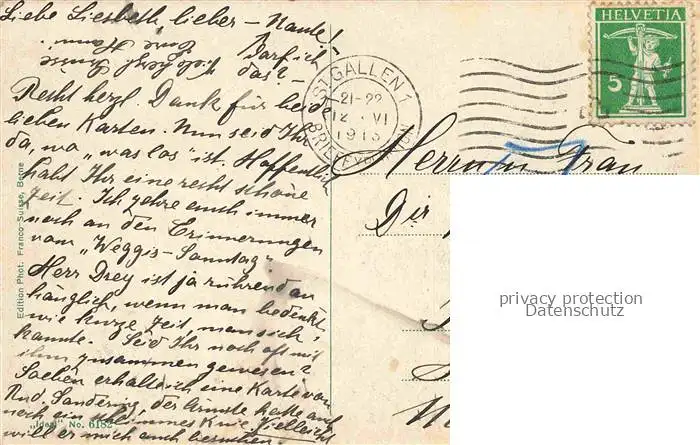 Liebe Liesbeth, lieber – Nante!
Darf ich
das? –
Recht herzl. Dank für beide
lieben Karten. Nun seid Ihr
da, wo „was los" ist. Hoffentlich
habt Ihr eine recht schöne
Zeit. Ich zehre auch immer
noch an den Erinnerungen
vom „Weggis-Sonntag".
Herr Drey ist ja rührend an
hänglich, wenn man bedenkt
wie kurze Zeit, man sich,
kannte. Seid Ihr noch oft mit
ihm zusammen gewesen?
Soeben erhalte ich eine Karte von
Rud. der Ärmste hatte auch
noch ein Knie. Vielleicht
will er mich auch besuchen.
Eure
herzl. Grüsse
Edition Phot. Franco-Suisse, Berne
„Ideal" No. 6182
ST. GALLEN 1
21-22
12. VI
1913
HELVETIA
5
Herrn u Frau
Dir
privacy protection
Datenschutz